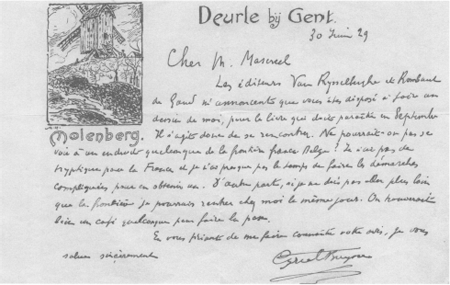 Deurle bij Gent.
30 Juin 29
Molenberg.
Cher M. Masereel
Les éditeurs Van Rysselberghe & Rombaut
de Gand m'annoncent que vous êtes disposé à faire un
dessin de moi, pour le livre que dois paraître en Septembre
Il s'agit donc de se rencontrer. Ne pourrait-on pas se
voir à un endroit quelconque de la frontière franco-Belge? Je n'ai pas de
tryptique pour la France et je n'ai presque pas le temps de faire les démarches
compliquées pour en obtenir un. D'autre part, si je ne dois pas aller plus loin
que la frontière je pourrais rentrer chez moi le même jour. On trouverait
bien un café quelconque pour faire la pose.
En vous priant de me faire connaître votre avis, je vous
salue sincèrement